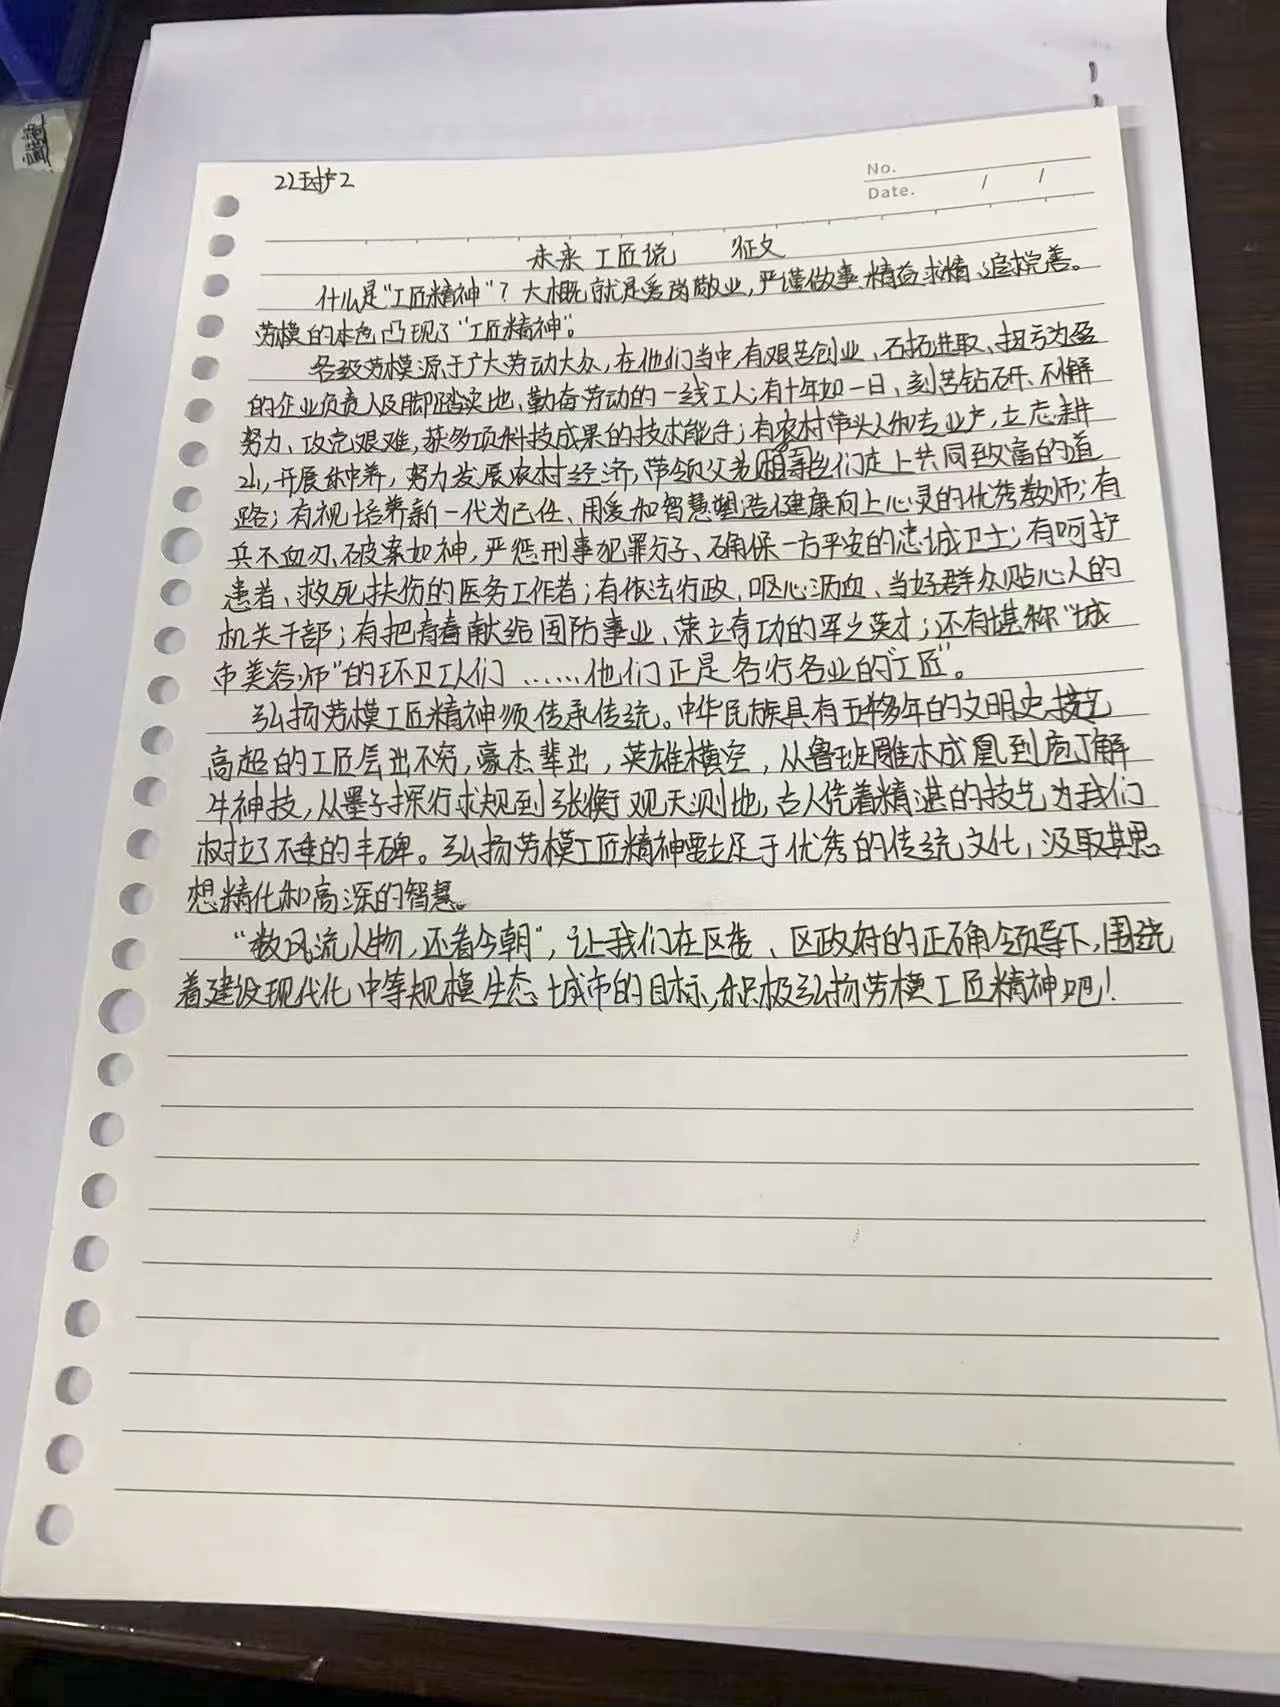 22 护2
No.
Date. / /
未来工匠说 征文
什么是“工匠精神”？大概就是爱岗敬业，严谨做事、精益求精、追求完善。
劳模的本色凸现了“工匠精神”。
各级劳模源于广大劳动大众，在他们当中，有艰苦创业、石拓进取、扭亏为盈
的企业负责人及脚踏实地、勤奋劳动的一线工人；有十年如一日、刻苦钻研、不懈
努力、攻克艰难，获多项科技成果的技术能手；有农村带头人和专业户，立志耕
山，开展种养，努力发展农村经济，带领父老乡亲们走上共同致富的道
路；有视培养新一代为己任、用爱和智慧塑造健康向上心灵的优秀教师；有
兵不血刃、破案如神，严惩刑事犯罪分子、确保一方平安的忠诚卫士；有呵护
患者、救死扶伤的医务工作者；有依法行政、呕心沥血、当好群众贴心人的
机关干部；有把青春献给国防事业、荣立奇功的军之英才；还有堪称“城
市美容师”的环卫工人们……他们正是各行各业的“工匠”。
弘扬劳模工匠精神须传承传统。中华民族具有五千多年的文明史，技艺
高超的工匠层出不穷，豪杰辈出，英雄横空，从鲁班雕木成凰到庖丁解
牛神技，从墨子探行求规到张衡观天测地，古人凭着精湛的技艺为我们
树立了不垂的丰碑。弘扬劳模工匠精神要立足于优秀的传统文化，汲取其思
想精化和高深的智慧。
“数风流人物，还看今朝”，让我们在区委、区政府的正确领导下，围绕
着建设现代化中等规模生态城市的目标，积极弘扬劳模工匠精神吧！